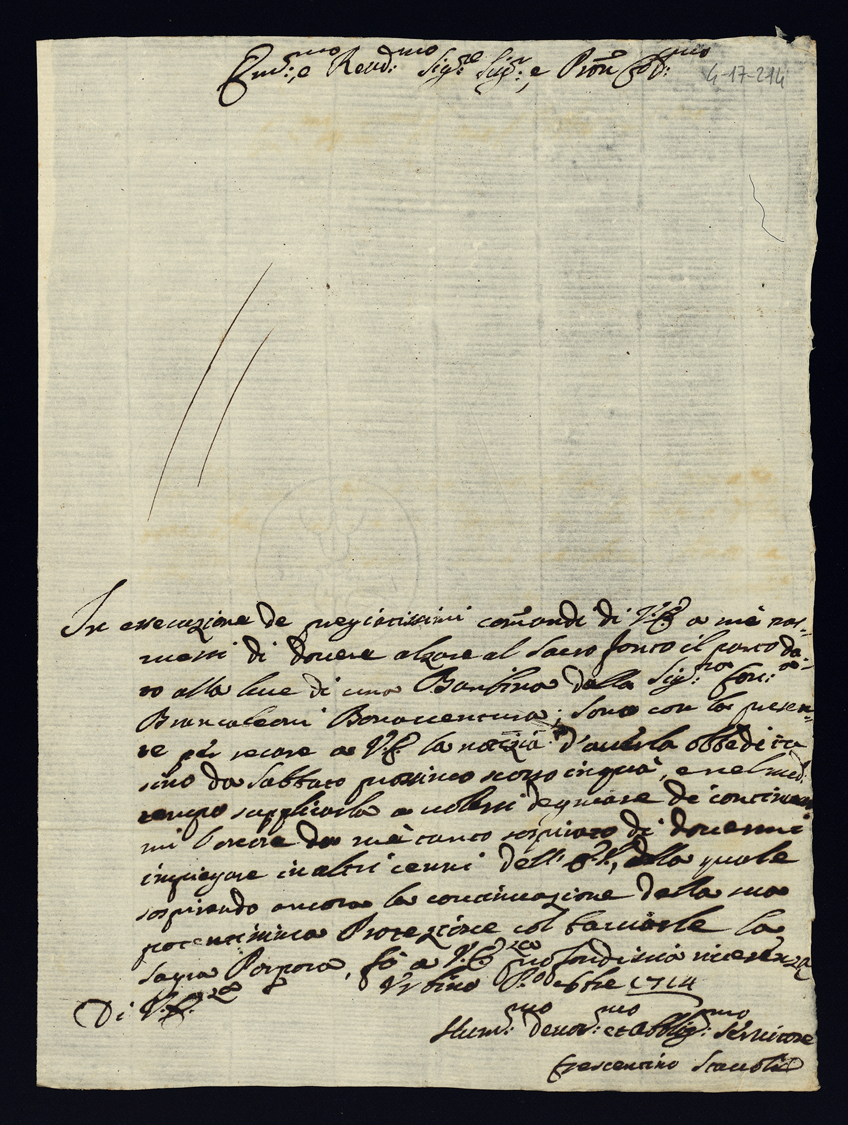 Em:mo, e Reud:mo Sig:re Sig:r, e Pron Col:mo
4-17-214
In essecuzione de pregiatissimi comandi di V.E. a mè tras-
messi di douere alzare al Sacro fonte il parto da-
to alla luce di una Bambina dalla Sig:ra Con:
Brancaleoni Bonauentura; sono con la presen-
te per recare a V.E. la notizia d'auerla obbedita
sino da Sabbato prossimo scorso cinquà, e nel med:
tempo supplicarla a uolersi degnare di continuar
mi l'onore da mè tanto sospirato di douermi
impiegare in altri cenni dell' E.V., dalla quale
sospirando ancora la continuazione della sua
potentissima Protezione col baciarle la
Sagra Porpora, fò a V.E. profondissima riuerenza
Vrbino P.o 8bre 1714
Di V.E.
Hum:mo Deuot:mo et Obblig:mo Seruitore
Crescentino Staccoli